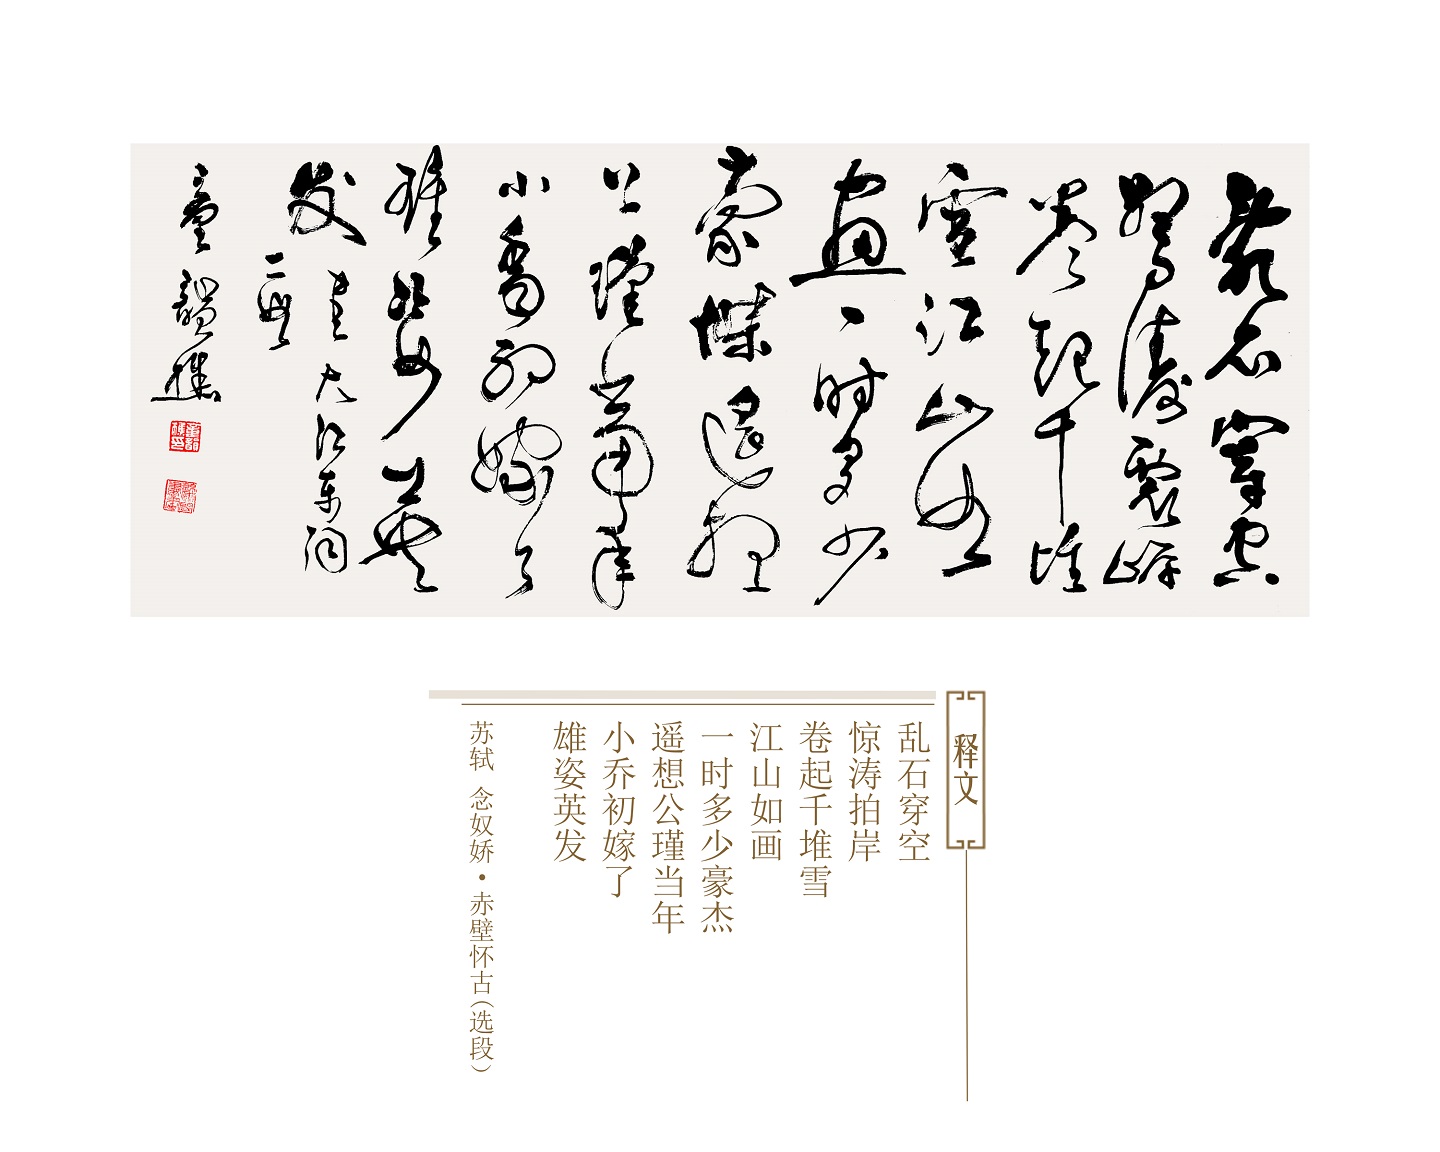 亂石穿空
驚濤裂岸
卷起千堆
雪江山如
畫一時多少
豪傑遥想
公瑾當年
小喬初嫁了
雄姿英
发
書大江東詞
童韻樵
释文
乱石穿空
惊涛拍岸
卷起千堆雪
江山如画
一时多少豪杰
遥想公瑾当年
小乔初嫁了
雄姿英发
苏轼 念奴娇·赤壁怀古(选段)